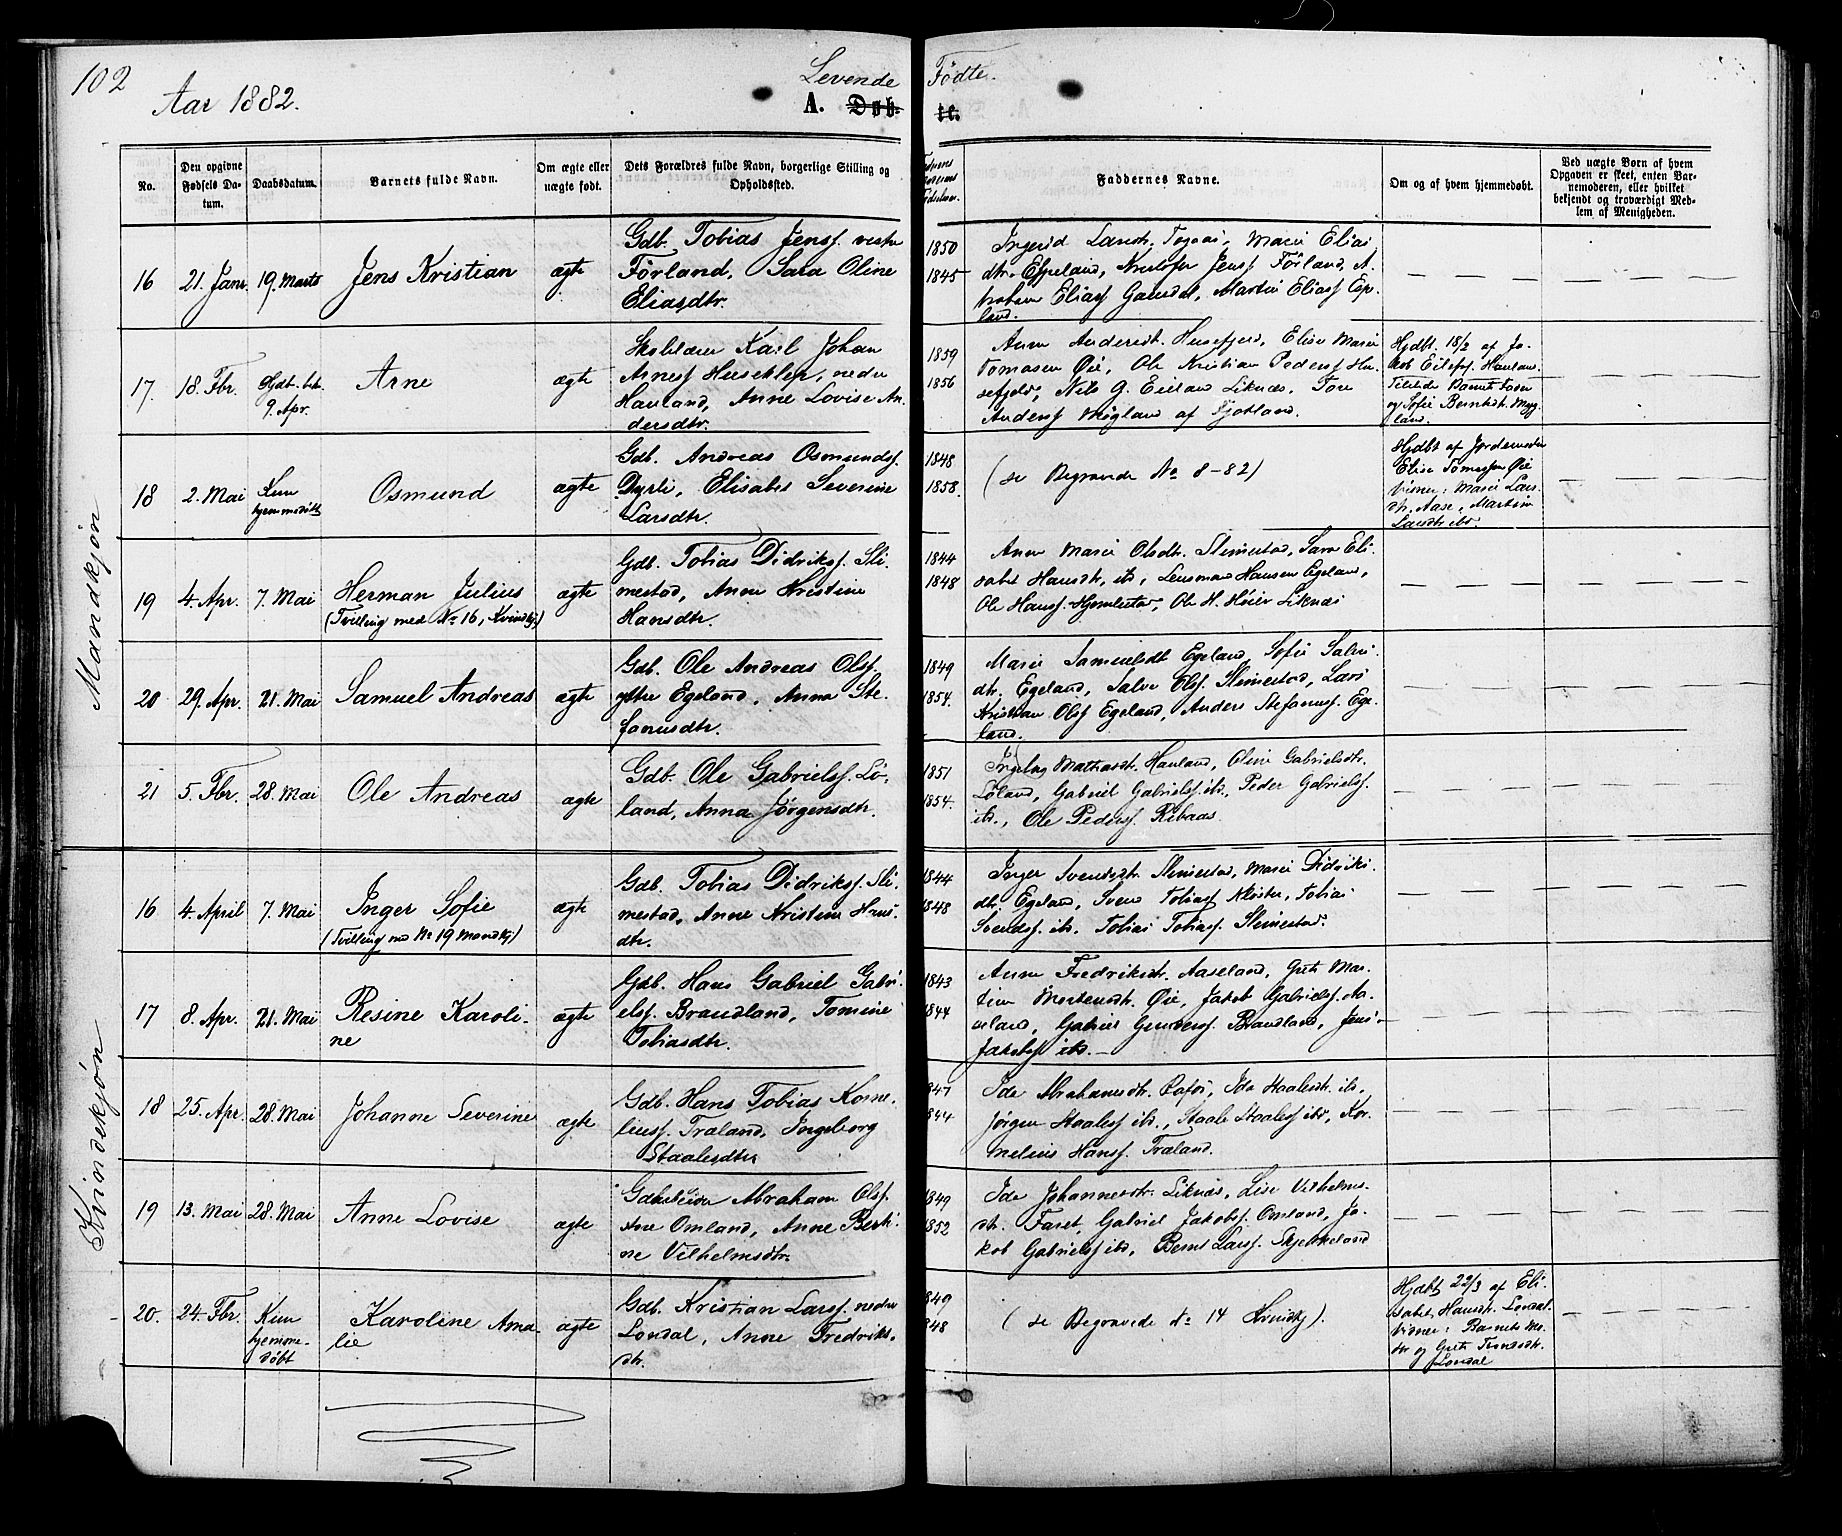 102
Levende Fødte.
Aar 1882.
A. Døb-te.
No.
Den opgivne Fødsels Datum.
Daabsdatum.
Barnets fulde Navn.
Om ægte eller uægte født.
Dets Forældres fulde Navn, borgerlige Stilling og Opholdssted.
Faddernes Navne.
Om og af hvem hjemmedøbt.
Ved uægte Born af hvem Opgaven er skeet, enten Barnemoderen, eller hvilket bekjendt og troværdigt Medlem af Menigheden.
Mandkjøn
16
21. Janr.
19. Marts
Jens Kristian
ægte
Gdb. Tobias Jenss. vestre
Førland, Sara Oline
Eliasdtr.
1850
1845
Ingerid Larsdt.
Marie Elias
dtr. Espeland, Kristofer Jenss. Førland,
Eliass Gausdal, Martin Eliass Espe
land.
17.
18. Fbr.
Hjdbt. bek.
9. Apr.
Arne
ægte
Skolelærer Karl Johan
Arness
nedre
Hauland, Anne Lovise An
dersdtr.
1859
1856
Anne Andersdt. Husefjeld, Elise Marie
Tomasen Øie, Ole Kristian Peders Hu
sefjeld, Nils G. Eieland Liknæs, Tore
Anderss Møgland af Fjotland.
Hjdbt. 18/2 af Ja
kob Eilefss. Hauland
Tilstede Barnets Fader
og Sofie Berntsdt. Myg
land.
18
2. Mai
Kun
hjemmedøbt
Osmund
ægte
Gdb. Andreas Osmundss.
Dyrli, Elisabet Severine
Larsdtr.
1848
1858.
(se Begravede No 8-82)
Hjdbt af Jordemoder
Elise Tomassen Øie
Vidner: Marie Lars
dt. Aase, Martine
Larsdtr ibd
19
4. Apr.
7. Mai
Herman Julius
(Tvilling med No 16, Kvindkj)
ægte
Gdb. Tobias Didrikss. Sli
mestad, Anne Kristine
Hansdtr.
1844
1848
Anne Marie Olsdtr. Slimestad, Sara Eli
sabet Hansdt. ibd, Lensmand Hansen Egeland,
Ole Hanss. Hjemlestad, Ole H. Høier Liknæs
20
29. Apr.
21. Mai
Samuel Andreas
ægte
Gdb. Ole Andreas Olss.
ystre Egeland, Anna Ste
fanusdtr.
1849
1854.
Marie Samuelsdt Egeland, Sofie Salve
dtr. Egeland, Salve Olss. Slimestad, Lars
Kristian Olss Egeland, Anders Stefanuss. Ege
land.
21
5. Fbr.
28. Mai
Ole Andreas
ægte
Gdb. Ole Gabrielss. Lø
land, Anna Jørgensdtr.
1851
1854.
Ingeborg Mathæsdt. Hauland, Oline Gabrielsdt.
Løland, Gabriel Gabrielss. ibd, Peder Gabrielss.
ibd., Ole Pederss. Ribaas.
Kvindekjøn
16
4. April
7. Mai
Inger Sofie
(Tvilling md No 19 Mandkj)
ægte
Gdb. Tobias Didrikss. Sli
mestad, Anne Kristine Hans
dtr.
1844
1848
Inger Svendsdt. Slimestad, Marie Didriks
dtr. Egeland, Svend Tobiass Kloster, Tobias
Svendss. ibd. Tobias Tobiass. Slimestad.
17
8. Apr.
21. Mai
Resine Karoli-
ne
ægte
Gdb. Hans Gabriel Gabri
elss. Brandland, Tomine
Tobiasdtr.
1843
1844
Anne Fredriksdtr. Aaseland, Grete Mar
tine Mortensdt. Øie, Jakob Gabrielss. Aa
seland, Gabriel Gunderss. Brandland, Jens
Jakobss ibd.
18
25. Apr.
28. Mai
Johanne Severine
ægte
Gdb. Hans Tobias Korne
liuss. Træland, Ingeborg
Staalesdtr.
1847
1844
Ide Abrahamsdtr. Rafos, Ide Staalesdt. ibd,
Jørgen Staaless ibd., Staale Staaless ibd, Kor
nelius Hanss. Træland.
19
13. Mai
28. Mai
Anne Lovise
ægte
Abraham Olss.
Omland, Anne Berti
ne Vilhelmsdtr.
1849
1852
Ide Johannesdtr. Liknæs, Lise Vilhelms
dt. Faret, Gabriel Jakobss. Omland, Ja
kob Gabrielss ibd, Bernt Larss. Skjekkeland
20.
24. Fbr
Kun
hjemme-
døbt
Karoline Ama
lie
ægte
Gdb. Kristian Larss. nedre
Londal, Anne Fredriks
dtr.
1849
1848
(se Begravede No 14 Kvindkj).
Hjdbt 22/3 af Eli
sabet Hansdt. Londal.
Vidner: Barnets Mo
der og Grete Tronsdt.
Londal